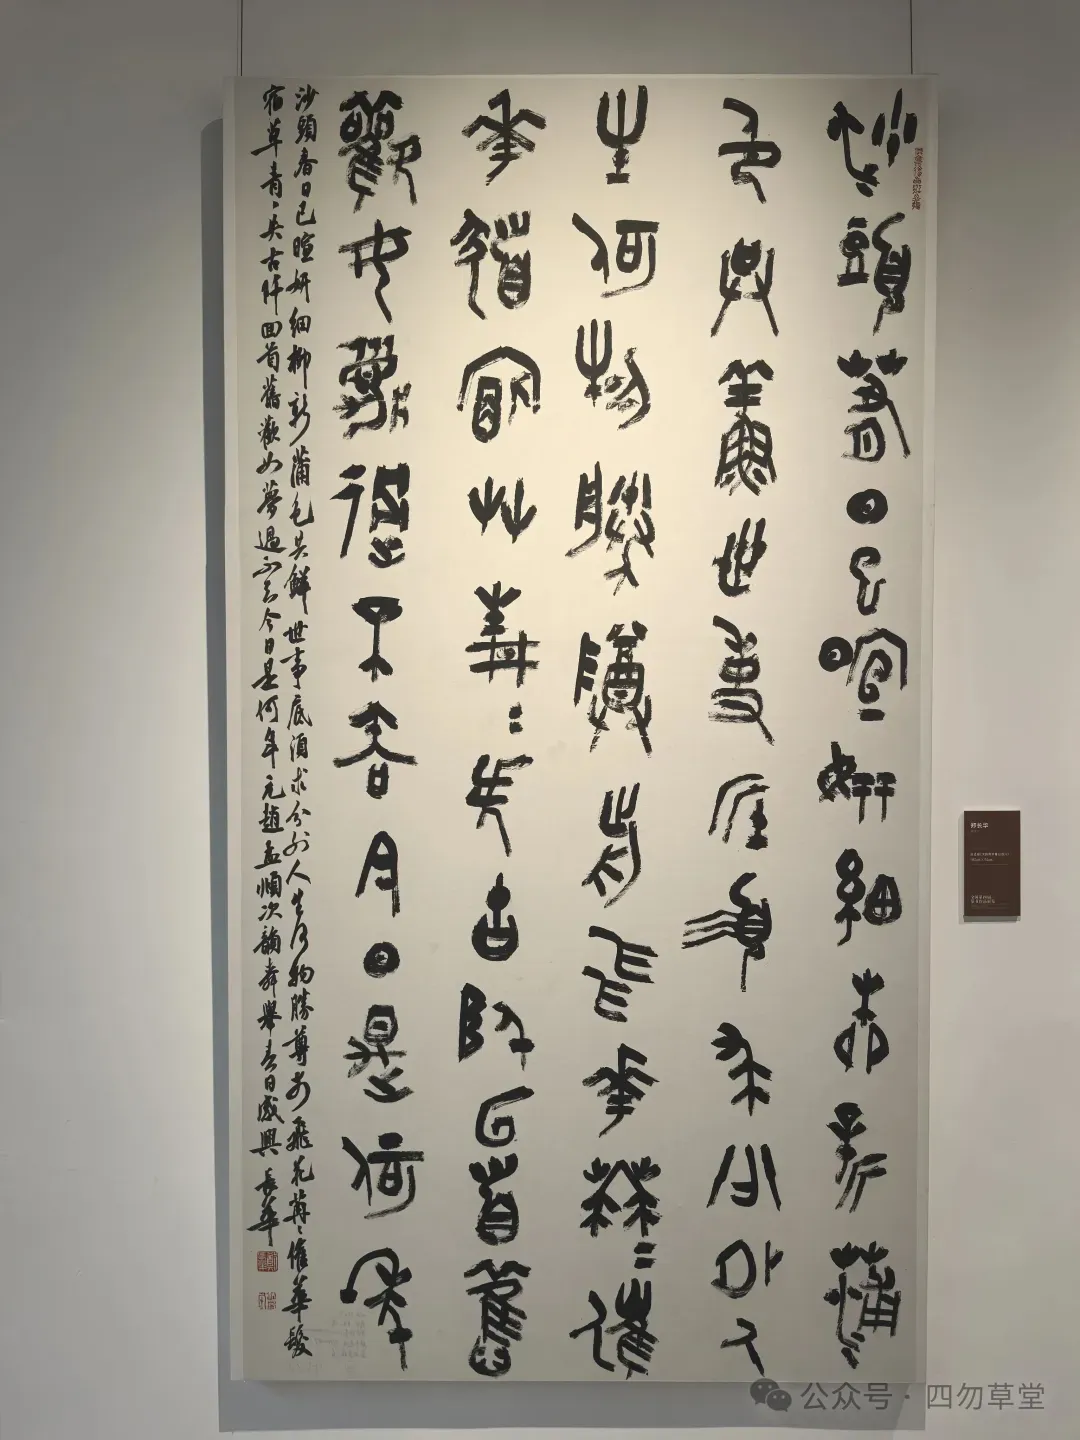 沙頭春日已暄妍細柳新蒲
色共鮮世事底須求分外人
生何物勝尊前飛花冉〻催
華髮宿草青〻失古阡回首舊
歡如夢過不知今日是何年
沙頭春日已暄妍細柳新蒲色共鮮世事底須求分外人生何物勝尊前飛花冉〻催華髮
宿草青〻失古阡回首舊歡如夢過不知今日是何年元趙孟頫次韻舜舉春日感興長華
公众号·四勿草堂